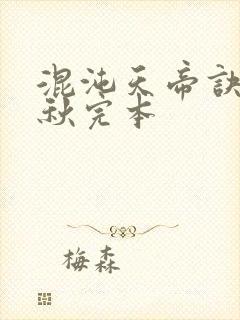 混沌天帝诀
秋完本
梅森